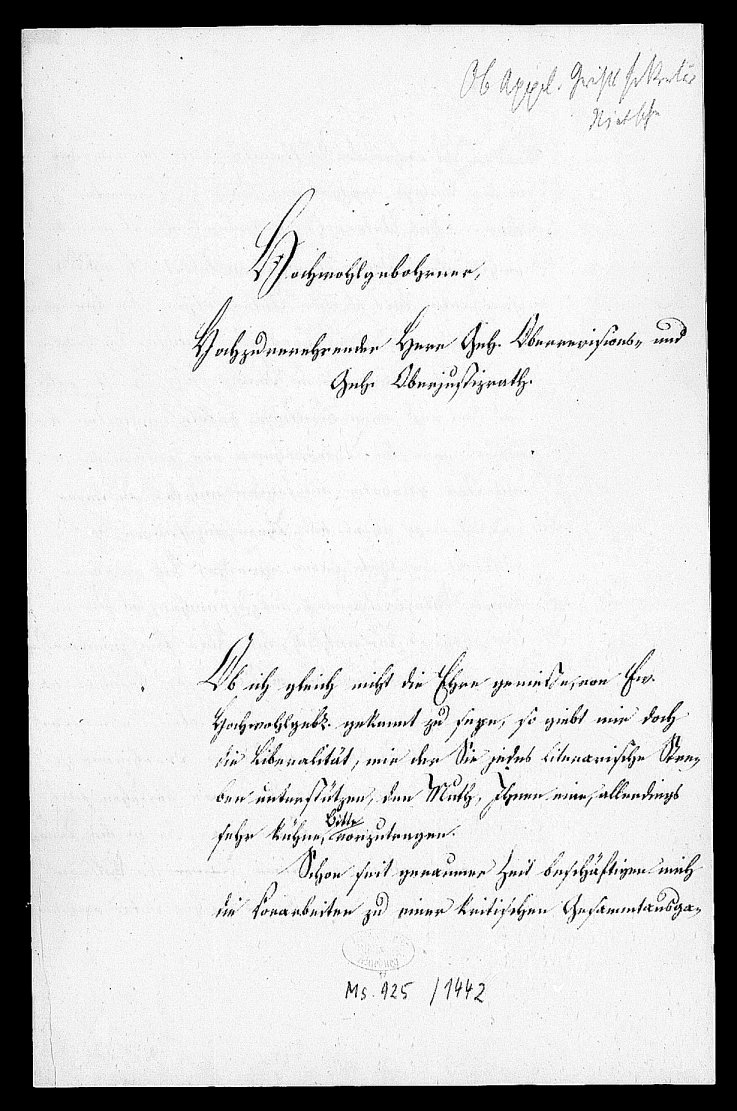 Ob Appel. Gerichts Sekretär
Nietsche
Hochwohlgebohrner,
Hochzuverehrender Herr Geh. Oberrevisions- und
Geh. Oberjustizrath.
Ob ich gleich nicht die Ehre geniesse, von Ew.
Hochwohlgeb. gekannt zu seyn, so giebt mir doch
die Liberalität, mit der Sie jedes literarische Stre-
ben unterstützen, den Muth, Ihnen eine, allerdings
sehr kühne, Bitte vorzutragen.
Schon seit geraumer Zeit beschäftigen mich
die Vorarbeiten zu einer kritischen Gesammtausga-
Ms. 925 /1442